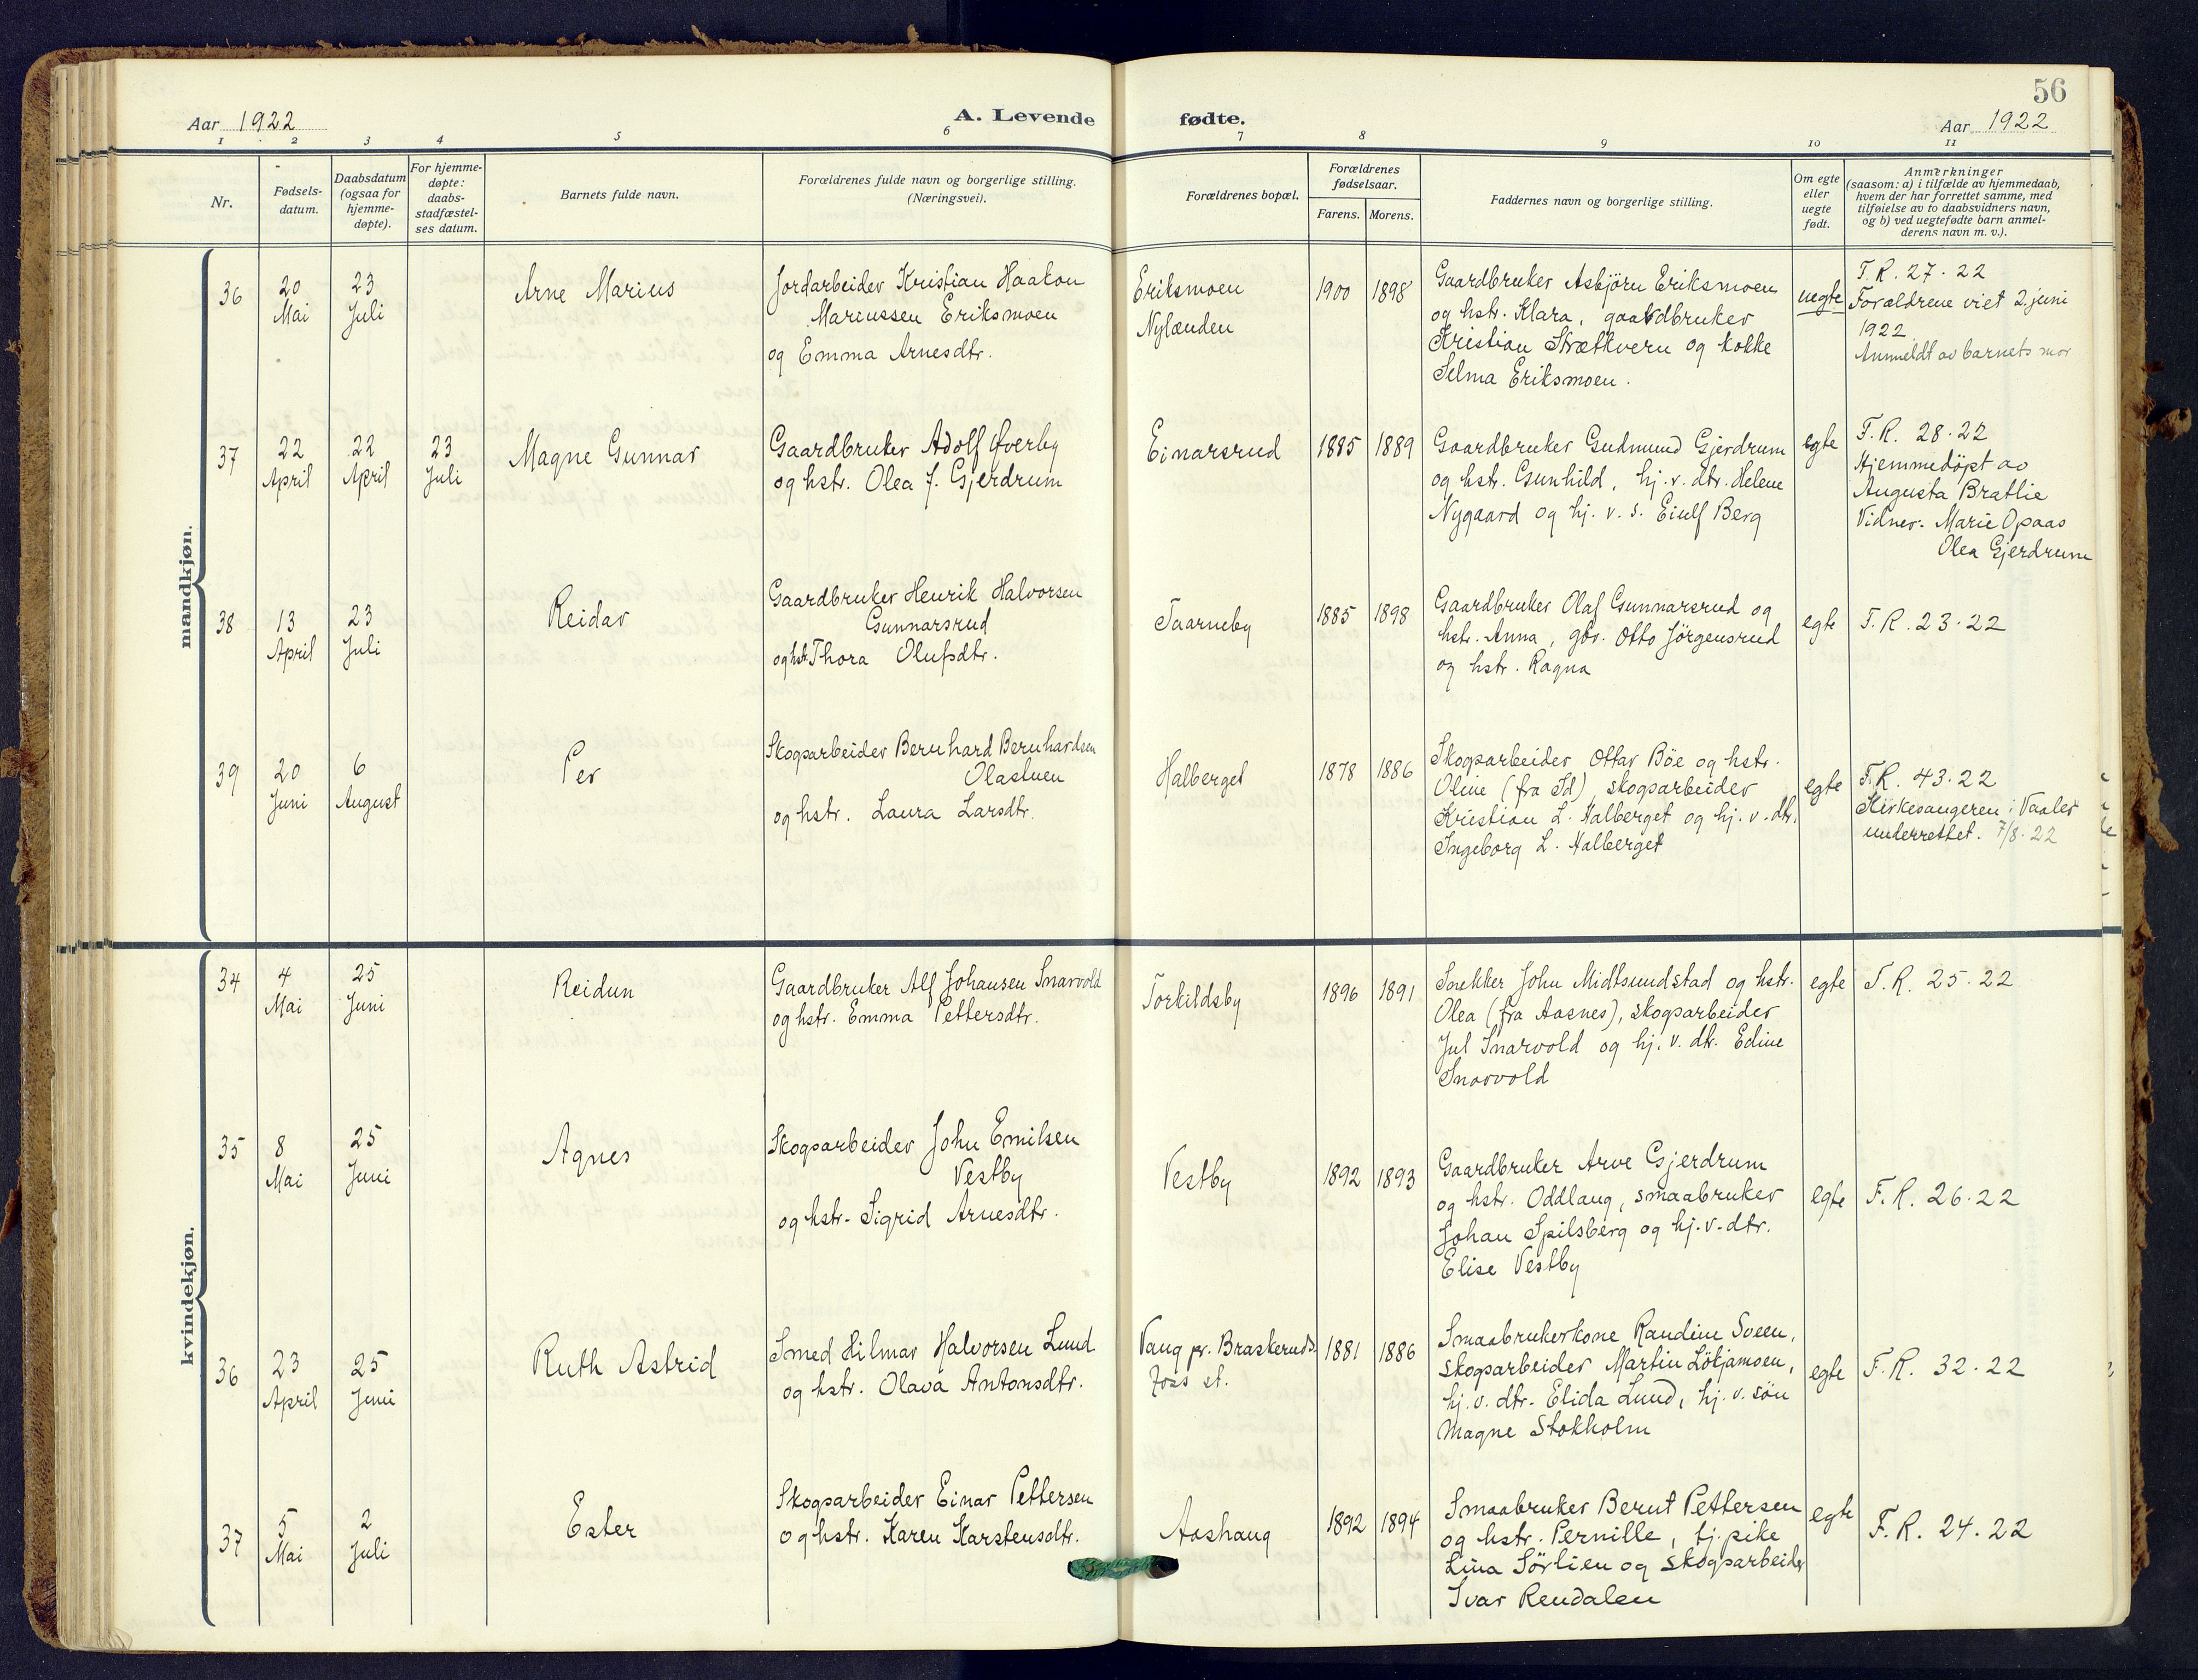 56
Aar 1922
A. Levende
fødte.
Aar 1922
1 2 3 4 5 6 7 8 9 10 11
Nr.
Fødsels-
datum.
Daabsdatum
(ogsaa for
hjemme-
døpte).
For hjemme-
døpte:
daabs-
stadfæstel-
ses datum.
Barnets fulde navn.
Forældrenes fulde navn og borgerlige stilling.
(Næringsvei).
Forældrenes bopæl.
Forældrenes
fødselsaar.
Farens.
Morens.
Faddernes navn og borgerlige stilling.
Om egte
eller
uegte
født.
Anmerkninger
(saasom: a) i tilfælde av hjemmedaab,
hvem der har forrettet samme, med
tilføielse av to daabsvidners navn,
og b) ved uegtefødte barn anmel-
derens navn m. v.).
mandkjøn.
36
20
Mai
23
Juli
Arne Marius
Jordarbeider Kristian Haakon
Mariussen Eriksmoen
og Emma Arnesdtr.
Eriksmoen
Nylænden
1900
1898
Gaardbruker Asbjörn Eriksmoen
og hstr. Klara, gaardbruker
Kristian Strætkvern og kokke
Selma Eriksmoen.
uegte
F.R. 27. 22
Forældrene viet 2. juni
1922
Anmeldt av barnets mor
37
22
April
22
April
23
Juli
Magne Gunnar
Gaardbruker Adolf Øverby
og hstr. Olea f. Gjerdrum
Einarsrud
1885
1889
Gaardbruker Gudmund Gjerdrum
og hstr. Gunhild, hj. v. dtr. Helene
Nygaard og hj. v. s. Eiulf Berg
egte
F.R. 28. 22
Hjemmedöpt av
Augusta Bratlie
Vidner. Marie Opaas
Olea Gjerdrum
38
13
April
23
Juli
Reidar
Gaardbruker Henrik Halvorsen
Gunnarsrud
og hstr. Thora Olufsdtr.
Taarneby
1885
1898
Gaardbruker Olaf Gunnarsrud og
hstr. Anna, gbr. Otto Jörgensrud
og hstr. Ragna
egte
F.R. 23. 22
39
20
Juni
6
August
Per
Skogsarbeider Bernhard Bernhardsen
Olastuen
og hstr. Laura Larsdtr.
Halberget
1878
1886
Skogsarbeider Ottar Böe og hstr.
Oline (fra Id), skogsarbeider
Kristian L. Halberget og hj. v. dtr.
Ingeborg L. Halberget
egte
F.R. 43. 22
Kirkesangeren i Vaaler
underrettet. 7/8. 22
kvindekjøn.
34
4
Mai
25
Juni
Reidun
Gaardbruker Alf Johansen Snarvold
og hstr. Emma Pettersdtr.
Torkildsby
1896
1891
Snekker John Midtsundstad og hstr.
Olea (fra Aasnes), skogsarbeider
Jul Snarvold og hj. v. dtr. Edine
Snarvold
egte
F.R. 25. 22
35
8
Mai
25
Juni
Agnes
Skogsarbeider John Emilsen
Vestby
og hstr. Sigrid Arnesdtr.
Vestby
1892
1893
Gaardbruker Arve Gjerdrum
og hstr. Oddlaug, smaabruker
Johan Spilsberg og hj. v. dtr.
Elise Vestby
egte
F.R. 26. 22
36
23
April
25
Juni
Ruth Astrid
Smed Hilmar Halvorsen Lund
og hstr. Olava Antonsdtr.
Vang pr. Braskerud
st.
1881
1886
Smaabrukerkone Randine Sveen,
skogsarbeider Martin Lökjamoen,
hj. v. dtr. Elida Lund, hj. v. sön
Magne Stokholm
egte
F.R. 32. 22
37
5
Mai
2
Juli
Ester
Skogsarbeider Einar Pettersen
og hstr. Karen Karstensdtr.
Aashaug
1892
1894
Smaabruker Bernt Pettersen
og hstr. Pernille, tj. pike
Lina Sörlien og skogsarbeider
Ivar Rendalen
egte
F.R. 24. 22